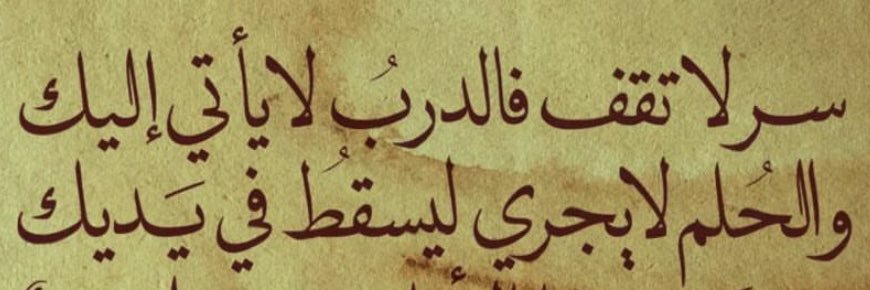 سر لا تقف فالدربُ لا يأتي إليك
والحُلم لا يجري ليسقُط في يَديك